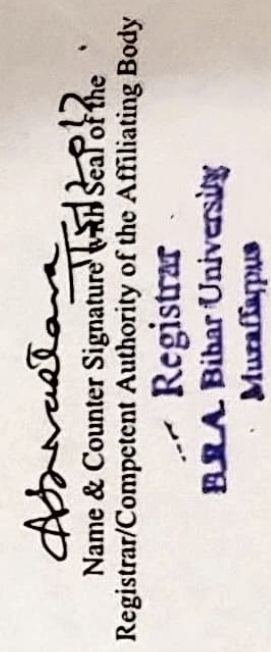 Name & Counter Signature with Seal of the
Registrar/Competent Authority of the Affiliating Body
Registrar
B.R.A. Bihar University
Muzaffarpur